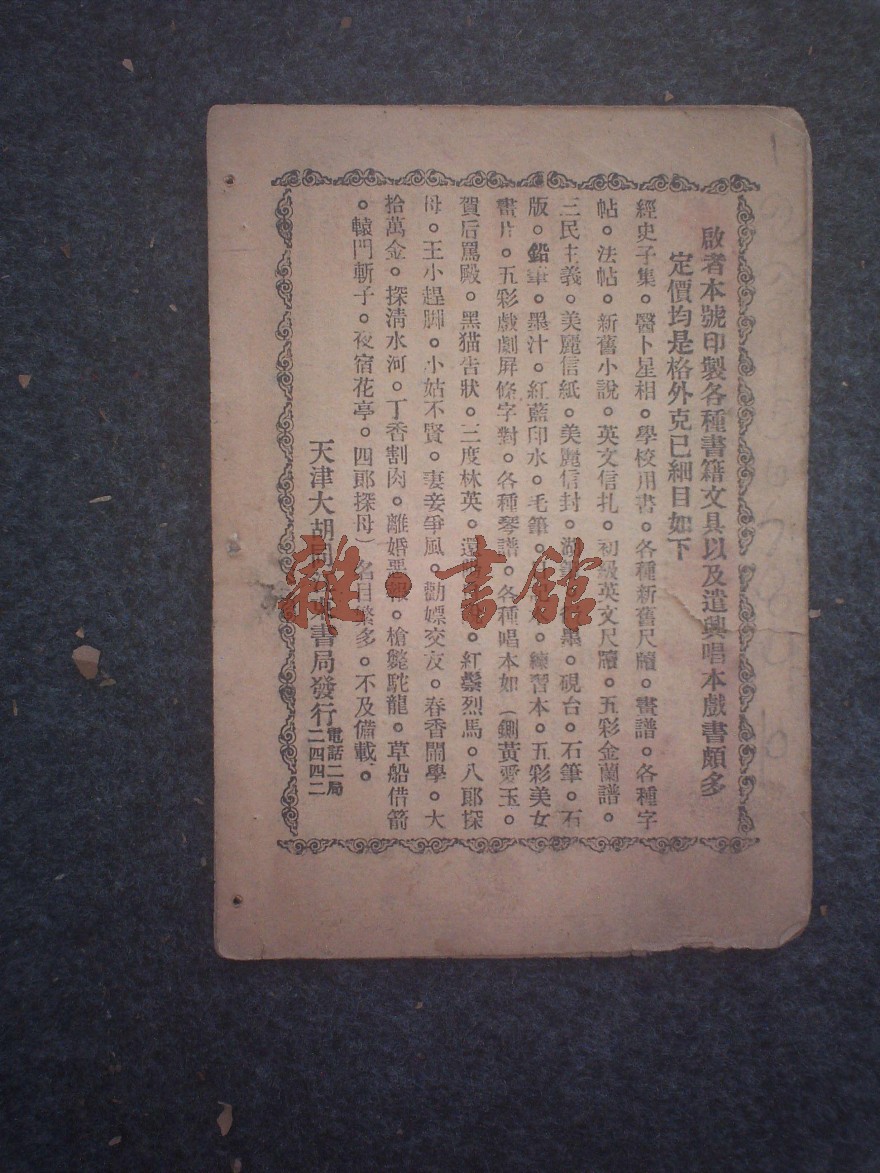 啟者本號印製各種書籍文具以及遣興唱本戲書頗多
定價均是格外克己細目如下
經史子集。醫卜星相。學校用書。各種新舊尺牘。畫譜。各種字
帖。法帖。新舊小說。英文信扎。初級英文尺牘。五彩金蘭譜。
三民主義。美麗信紙。美麗信封。湖 墨。硯台。石筆。石
版。鉛筆。墨汁。紅藍印水。毛筆。 練習本。五彩美女
畫片。五彩戲劇屏條字對。各種琴譜。各種唱本如(鍘黃愛玉。
賀后罵殿。黑猫告狀。三度林英。還 。紅鬃烈馬。八郎探
母。王小趕脚。小姑不賢。妻妾爭風。勸嫖交友。春香鬧學。大
拾萬金。探清水河。丁香割肉。離婚惡報。槍斃駝龍。草船借箭
。轅門斬子。夜宿花亭。四郎探母)名目繁多。不及備載。
天津大胡同 書局發行 電話二局二四四二
雜·書館